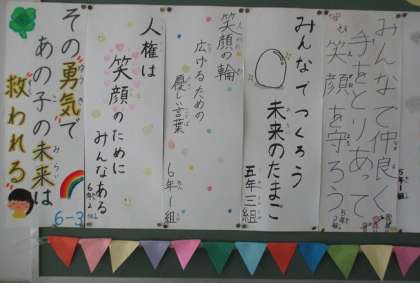 みんなで仲良く
5年1組
手をとりあって
笑顔を守ろう
みんなでつくろう
未来のたまご
五年三組
笑顔の輪
広げるための
優しい言葉
6年1組
人権は
笑顔のために
みんなある
6年2組
その勇気で
あの子の未来は
救われる
6-3